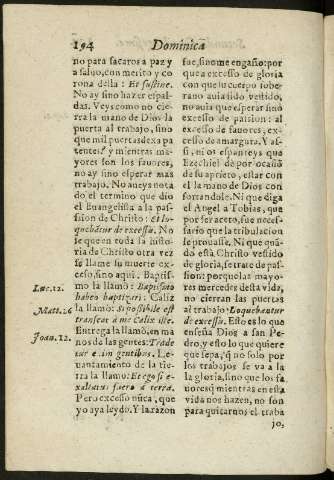 194
Dominica
no para sacaros a paz y
a saluo, con merito y co
rona della: Et sustine.
No ay sino hazer espal-
das. Veys como no cie-
rra la mano de Dios la
puerta al trabajo, sino
que mil puertas dexa pa
tentes? y mientras ma-
yores son los fauores,
no ay sino esperar mas
trabajo. No aueys nota
do el termino que dio
el Euangelista a la pas-
sion de Christo: Et lo-
quebatur de excessu. No
se que en toda la histo
ria de Christo otra vez
se llame su muerte ex-
cesso, sino aqui. Baptis-
mo la llamò: Baptismo
habeo baptizari: Caliz
la llamò: Si possibile est
transeat a me Calix iste.
Entrega la llamò, en ma
nos de las gentes: Trade
tur enim gentibus. Le-
uantamiento de la tie-
rra la llamò: Et ego si e-
xaltatus fuero à terra.
Pero excesso nũca, que
yo aya leydo. Y la razon
Luc. 12.
Matt. 26
Joan. 12.
fue, sino me engaño: por
que a excesso de gloria
con que su cuerpo sobe-
rano auia sido vestido,
no auia que esperar sino
excesso de passion: al
excesso de fauores, ex-
cesso de amargura. Y as-
si, ni os espanteys que
Ezechiel dè por ocasiõ
de su aprieto, estar con
el la mano de Dios con
fortandole. Ni que diga
el Angel a Tobias, que
por ser acepto, fue neces-
sario que la tribulacion
le prouasse. Ni que quã-
do està Christo vestido
de gloria, se trate de pas-
sion: porque las mayo-
res mercedes desta vida,
no cierran las puertas
al trabajo: Loquebantur
de excessu. Esto es lo que
enseña Dios a san Pe-
dro, y esto lo que quiere
que sepa, q̃ no solo por
los trabajos se va a la
la gloria, sino que los fa
uores q̃ mientras en esta
vida nos hazen, no son
para quitarnos el traba
jo,